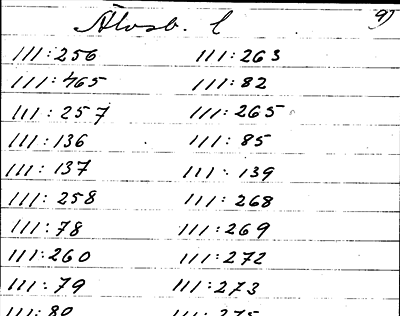 Älvsb. l 95
111:256 111:263
111:465 111:82
111:257 111:265
111:136 111:85
111:137 111:139
111:258 111:268
111:78 111:269
111:260 111:272
111:79 111:273
111:80 111:275